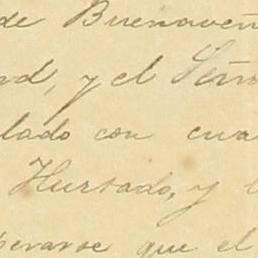 de Buenaven
nd, y el Señ
lado con cua
Hurtado, y l
perarse que el